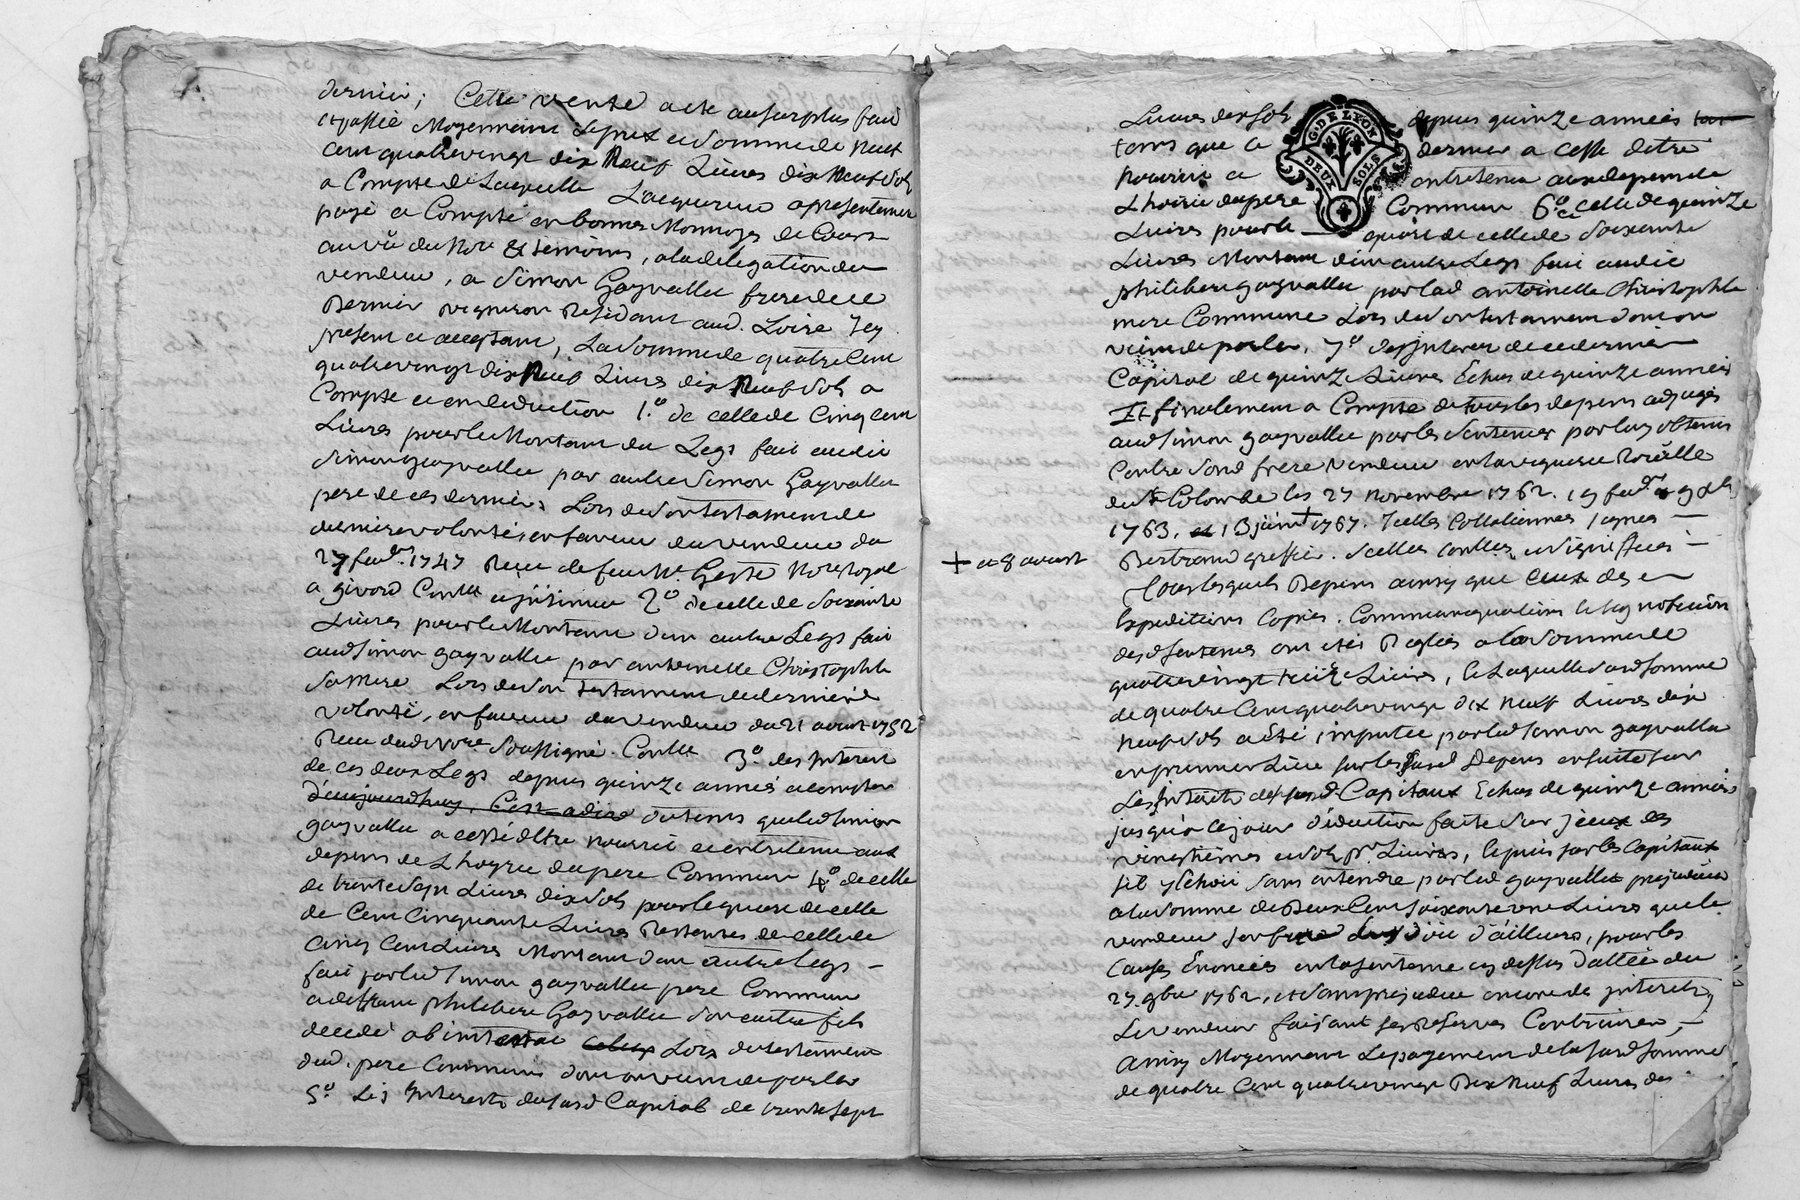 dernier; Cette vente a ete ausurplus fait
et passée Moyennant Le prix et Somme de Neuf
Cent quatrevingt dix Neuf Livres dix Neuf Sols
a Compte de Laquelle L'acquereur a presentement
payé a Compté en bonnes Monnoyes de Cours
au vû du Nore & temoins, a la delegation du
vendeur, a Simon Gayvallet frere de ce
Dernier vigneron Residant aud. Loire Icy
present et acceptant, La Somme de quatre Cent
quatrevingt dix Neuf Livres dix Neuf Sols a
Compte et en deduction 1.º de celle de Cinq Cent
Livres pour le Montant du Legs fait audit
Simon gayvallet par autre Simon Gayvallet
pere de ces derniers Lors de Son testament de
derniere volonté, en faveur du vendeur du
27 fevr. 1747 Reçu de feu Me. Nore Royal
a givord Contlé 2º de celle de Soixante
Livres pour le Montant d'un autre Legs fait
aud Simon gayvallet par antoinette Christophle
Sa Mere Lors de Son testament de derniere
volonté, en faveur du vendeur du 21 aoust 1752
Reçu dud Nore Soussigné. Contlé 3º des Interets
de ces deux Legs depuis quinze années a compter
d'aujourdhuy, C'est a dire du tems que led Simon
gayvallet a cessé d'Etre nourri et entretenu aux
depens de L'hoyrie du pere Commun 4º de celle
de trente Sept Livres dix Sols pour le quart de celle
de Cent Cinquante Livres Restantes de celle de
Cinq Cent Livres Montant d'un autre Legs
fait par led Simon gayvallet pere Commun
a deffunt philibert Gayvallet Son autre fils
decedé ab intestat Lors du testament
dud. pere Commun dont on vient de parler
5º Les Interets dud Capital de trente Sept
Livres dix Sols depuis quinze années
tems que ce dernier a cessé d'etre
nourrit et entretenu aux depens de
L'hoirie du pere Commun 6º de celle de quinze
Livres pour le quart de celle de Soixante
Livres Montant d'un autre Legs fait audit
philibert gayvallet par lad antoinette Christophle
mere Commune Lors de Son testament dont on
vient de parler, 7º des Interets de ce dernier
Capital de quinze Livres Echus de quinze années
Et finalement a Compte de tous les depens adjugés
aud Simon gayvallet par les Sentences par luy obtenues
Contre Sond frere vendeur en la Royalle
de Ste Colombe les 27 novembre 1762. 19 fevr
1763, et 13 juin + 1767. Icelles Collationnées Signées
+ et 8 aoust
Bertrand greffier. Scellées contlées et Signiffiées
tous lesquels Depens ainsy que ceux des
Expeditions Copies. Commancquations et Signification
desd Sentences ont etés Reglés a la Somme de
quatrevingt treize Livres, de Laquelle Susd Somme
de quatre Cent quatrevingt dix neuf Livres dix
neuf Sols a été imputée par led Simon gayvallet
en premier Lieu sur les Susd Depens ensuite sur
Les Interets des susd. Capitaux Echus de quinze années
jusqu'a ce jour déduction faite Sur iceux des
vingtiemes et Sols pr. Livres, le puis sur les Capitaux
S'il y Echoit Sans entendre par led gayvallet prejudicier
a la Somme de Deux Cent Soixante une Livres que le
vendeur Son frere luy doit d'ailleurs, pour les
Causes Enoncées en la Sentence cy dessus dattée du
27. 9bre 1762, et Sans prejudice encore des interets
Le vendeur faisant ses Reserves Contraires,
Ainsy Moyennant Le payement de la Susd Somme
de quatre Cent quatrevingt Dix Neuf Livres dix
G. DE LYON
DEUX SOLS